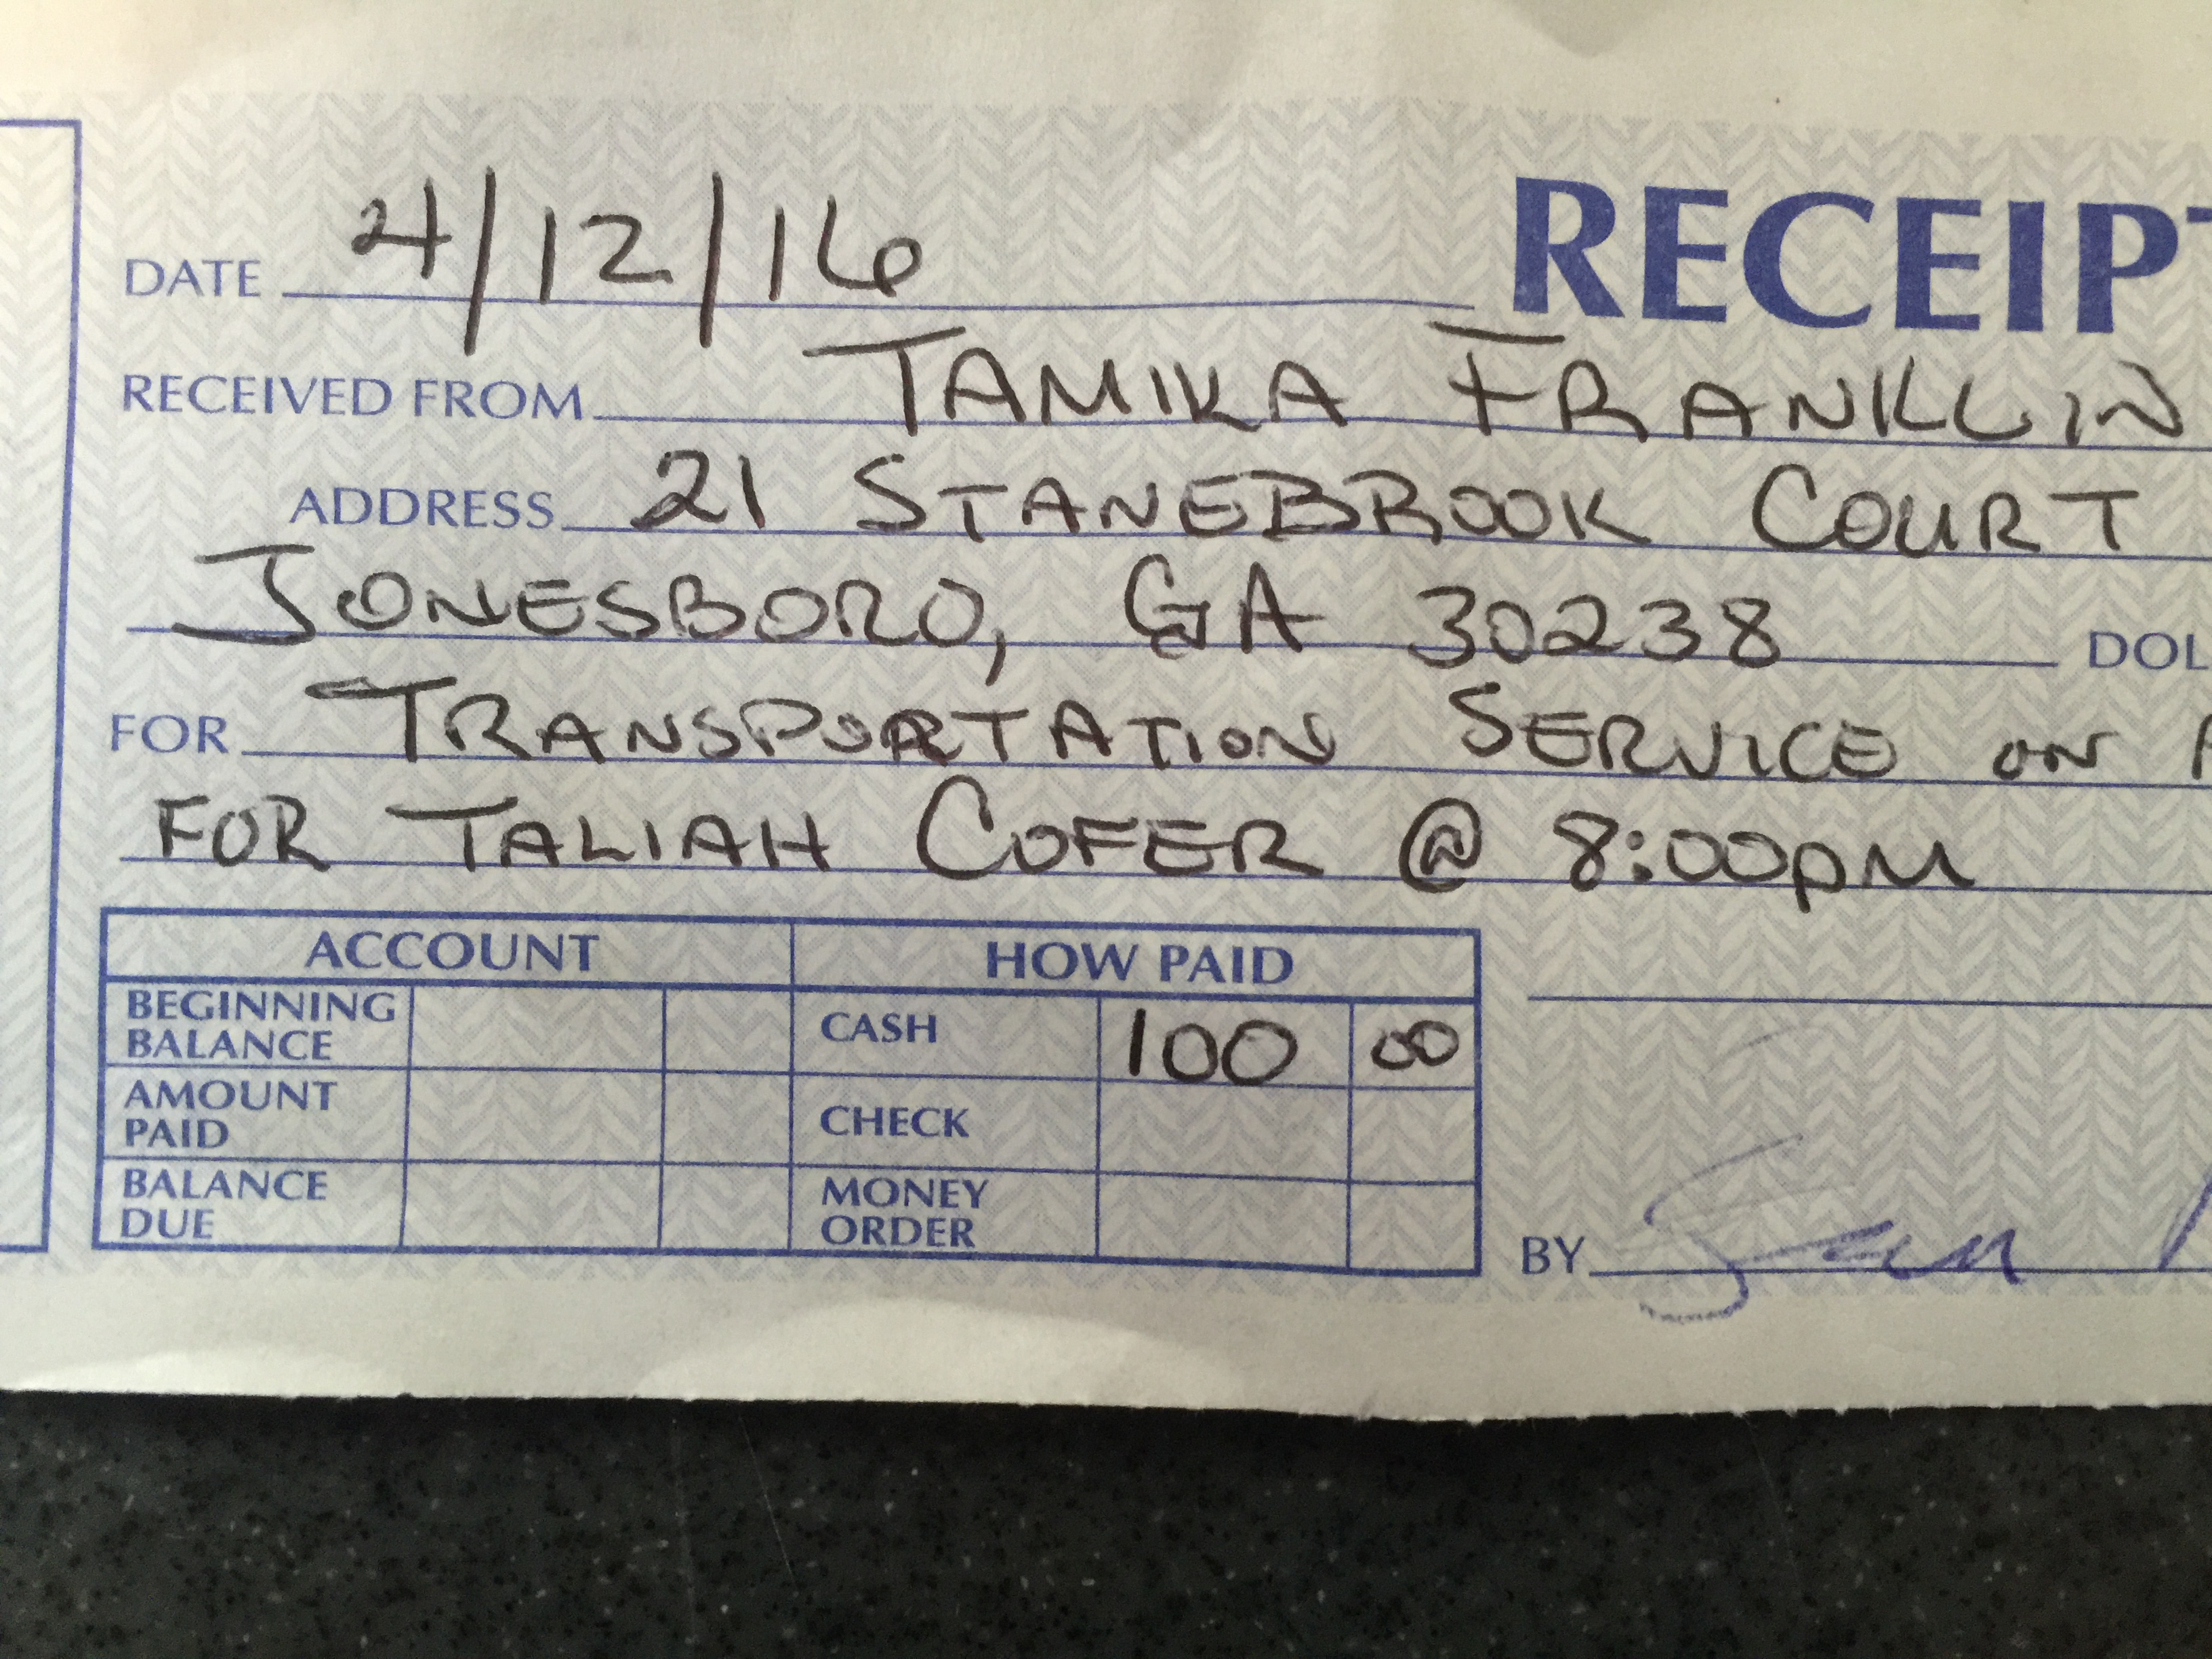 RECEIPT
DATE 4/12/16
RECEIVED FROM TAMIKA FRANKLIN
ADDRESS 21 STANEBROOK COURT
JONESBORO, GA 30238 DOL
FOR TRANSPORTATION SERVICE ON
FOR TALIAH COFER @ 8:00PM
ACCOUNT HOW PAID
BEGINNING BALANCE CASH 100 00
AMOUNT PAID CHECK
BALANCE DUE MONEY ORDER
BY